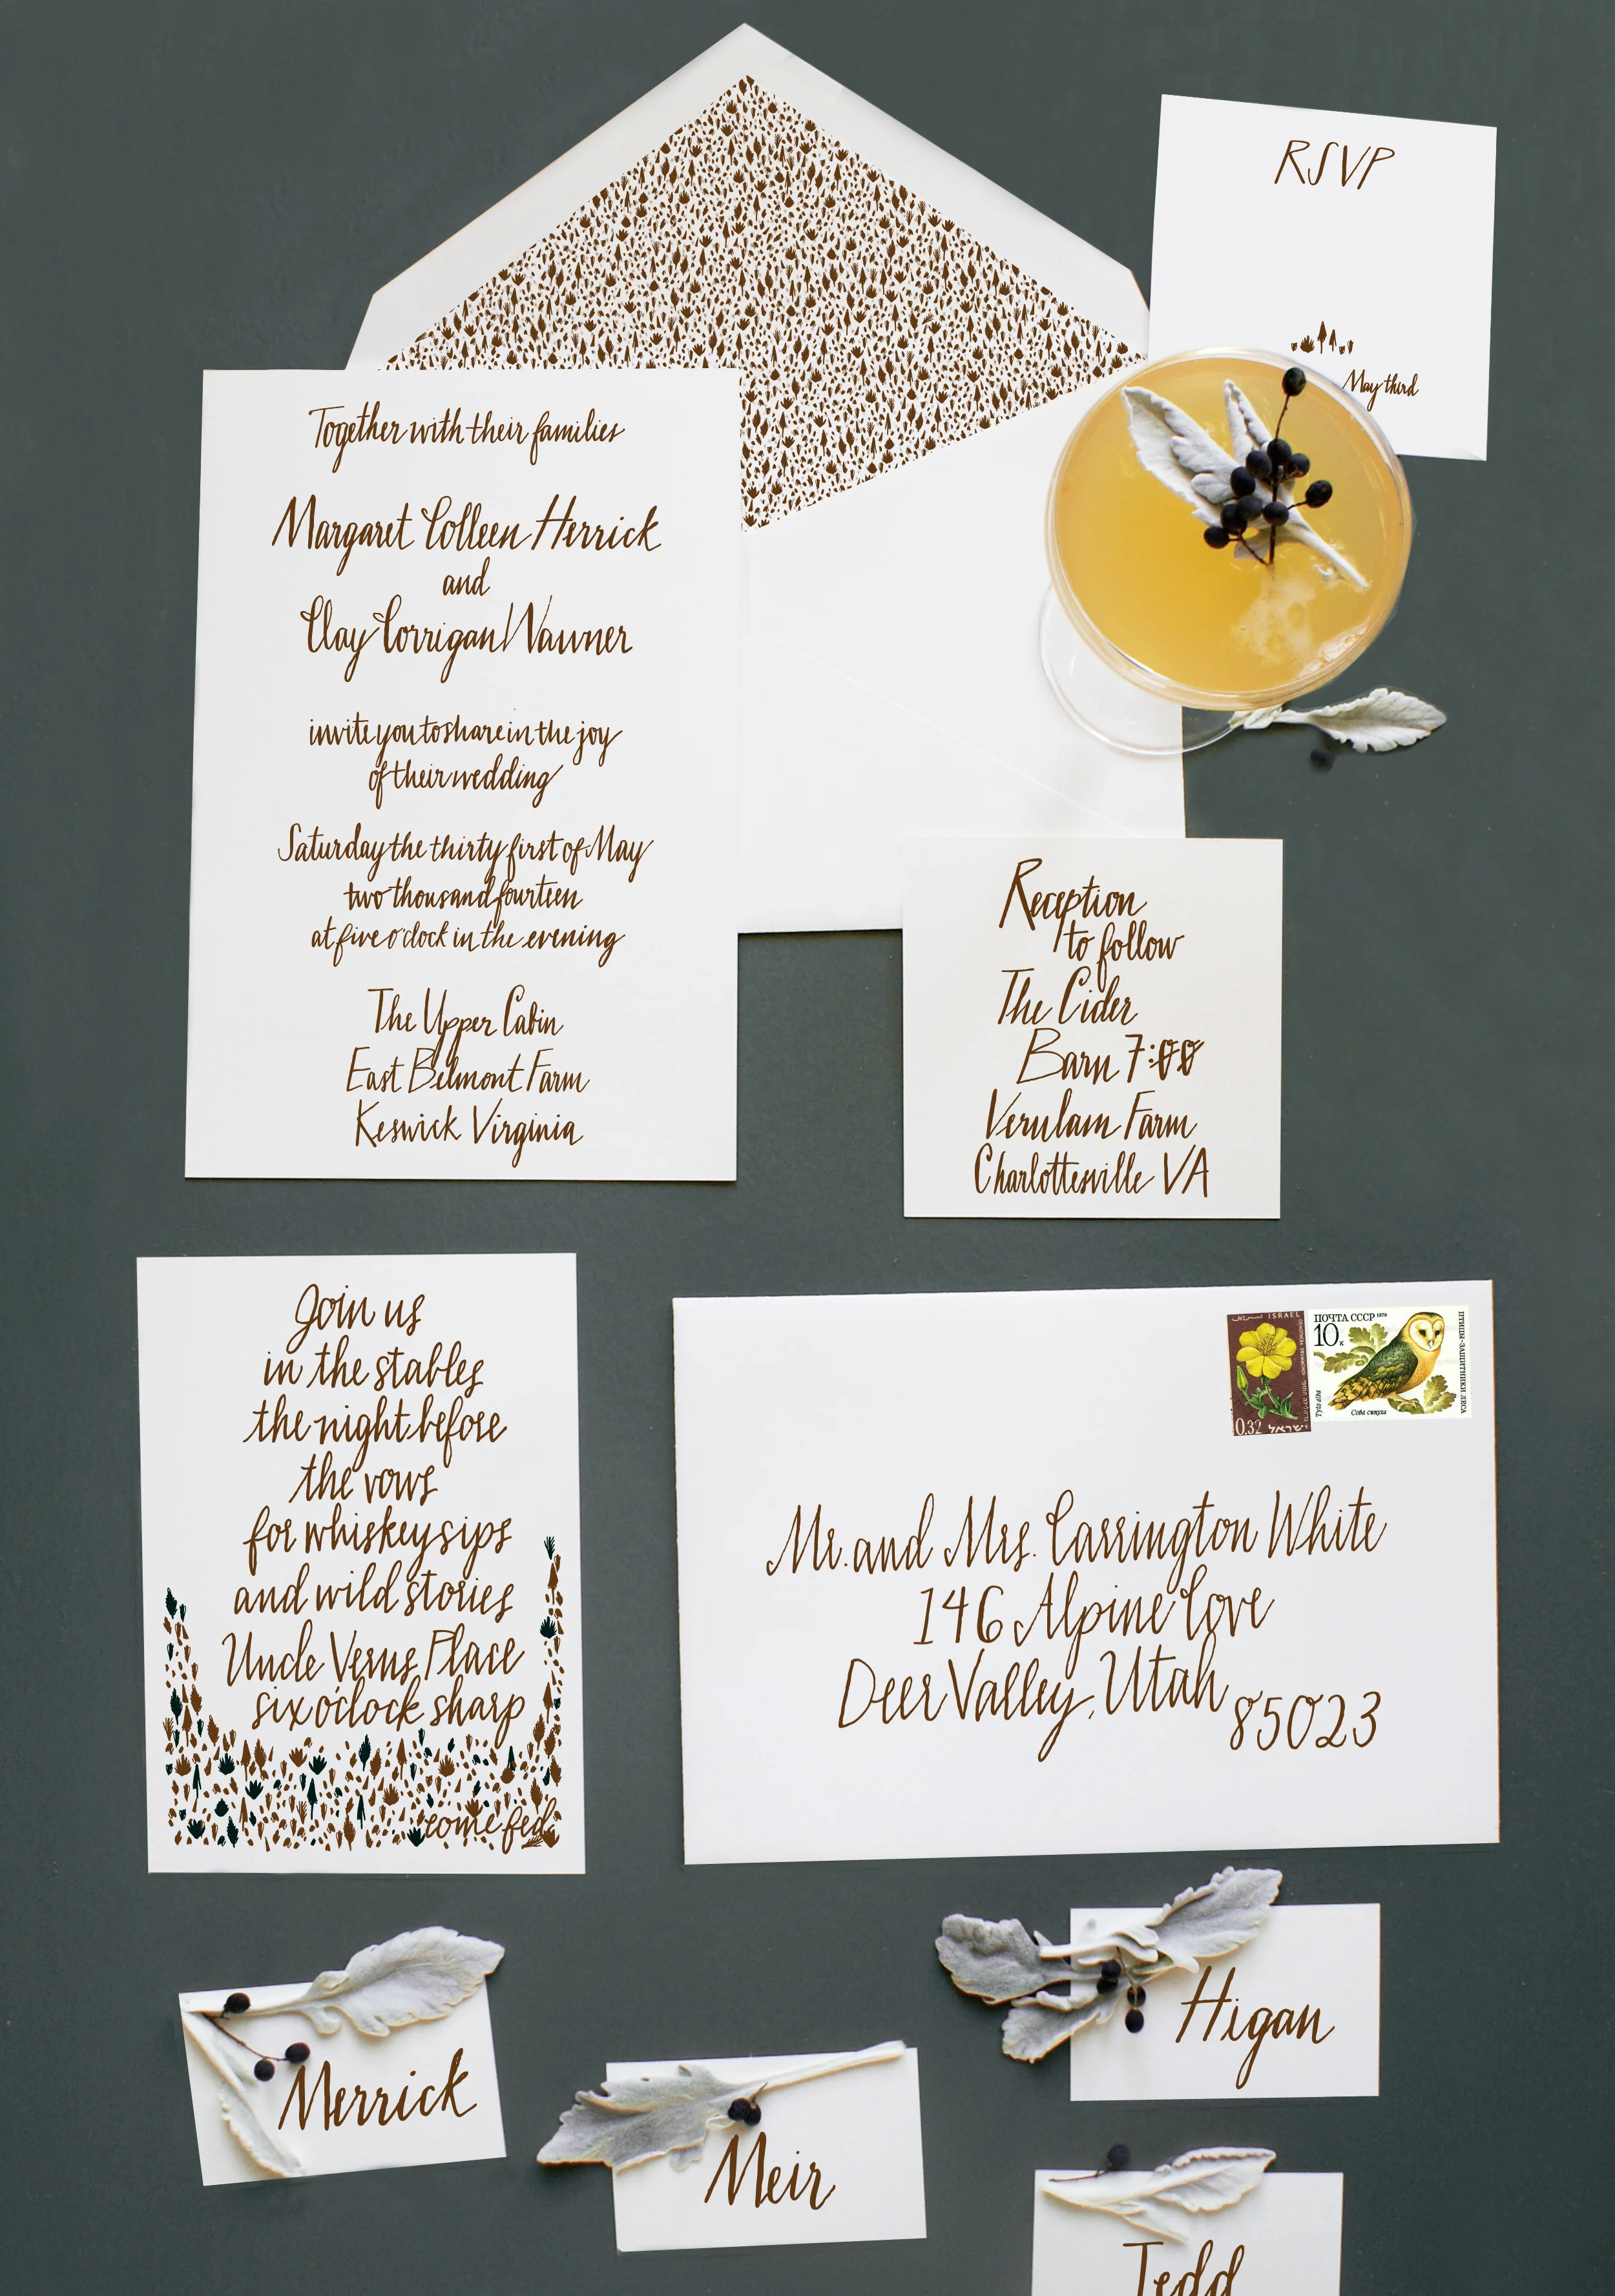 RSVP
May third
Together with their families
Margaret Colleen Herrick
and
Clay Corrigan Wawner
invite you to share in the joy
of their wedding
Saturday the thirty first of May
two thousand fourteen
at five o'clock in the evening
The Upper Cabin
East Belmont Farm
Keswick Virginia
Reception
to follow
The Cider
Barn 7:00
Verulam Farm
Charlottesville VA
Join us
in the stables
the night before
the vows
for whiskey sips
and wild stories
Uncle Verns Place
six o'clock sharp
come fed
ISRAEL
0.32 ישראל
ПОЧТА СССР 1979
10к
ПТИЦЫ-ЗАЩИТНИКИ ЛЕСА
Tyto alba
Сова сипуха
Mr. and Mrs. Carrington White
146 Alpine Cove
Deer Valley, Utah 85023
Merrick
Meir
Higan
Tedd